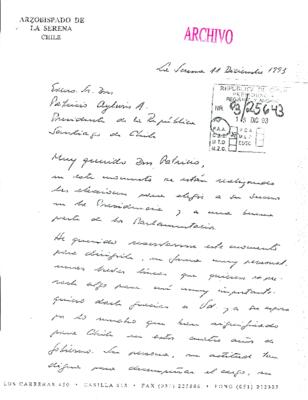 ARZOBISPADO DE
LA SERENA
CHILE
ARCHIVO
La Serena 11 Diciembre 1993
Excmo. Sr. Don
Patricio Aylwin A.
Presidente de la República
Santiago de Chile
REPUBLICA DE CHILE
PRESIDENCIA
NR. 93/25643
DIC 93
P.A.A.
Muy querido Don Patricio,
en este momento se están realizando
las elecciones para elegir a su sucesor
en la Presidencia y a una buena
parte de los Parlamentarios
He querido reservarme este momento
para dirigirle, en forma muy personal,
unas breves líneas que quieren expre-
sarle algo para mí muy importante:
quiero darle gracias a Ud. y a su espo-
sa por lo mucho que han significado
para Chile en estos cuatro años de
Gobierno. Su persona, su actitud tan
digna para desempeñar el cargo, su
LOS CARRERAS 450 - CASILLA 613 - FAX (051) 225886 - FONO (051)